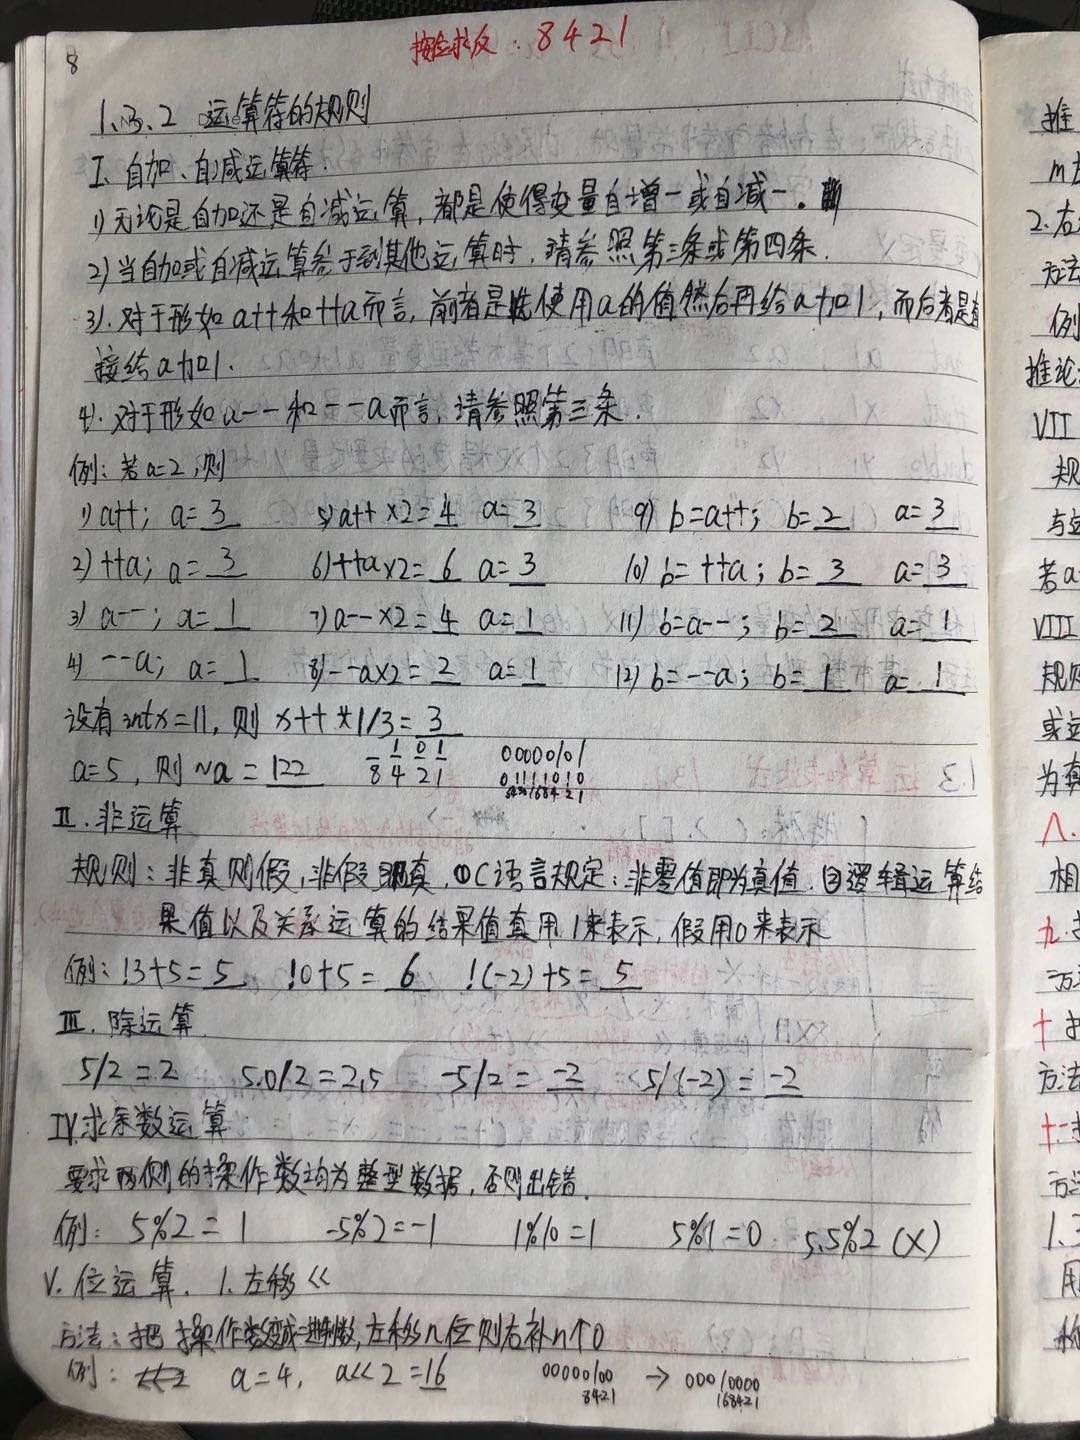 8
按位求反：8421
1.3.2 运算符的规则
I、自加、自减运算符.
1）无论是自加还是自减运算，都是使得变量自增一或自减一。
2）当自加或自减运算参于到其他运算时，请参照第三条或第四条.
3）. 对于形如 a++ 和 ++a 而言，前者是先使用a的值然后再给a加1，而后者是直
接给a加1.
4）. 对于形如 a-- 和 --a而言，请参照第三条.
例：若a=2，则
1）a++; a=3 5）a++×2=4 a=3 9）b=a++; b=2 a=3
2）++a; a=3 6）++a×2=6 a=3 10）b=++a; b=3 a=3
3）a--; a=1 7）a--×2=4 a=1 11）b=a--; b=2 a=1
4）--a; a=1 8）--a×2=2 a=1 12）b=--a; b=1 a=1
设有 int x=11，则 x++*1/3=3
1 0 1 00000101
a=5，则~a=122 8 4 2 1 01111010
II. 非运算
规则：非真则假，非假即真，①C语言规定：非零值即为真值. ②逻辑运算结
果值以及关系运算的结果值真用1来表示，假用0来表示
例：!3+5=5 !0+5=6 !(-2)+5=5
III. 除运算.
5/2=2 5.0/2=2.5 -5/2=-2 5/(-2)=-2
IV.求余数运算
要求两侧的操作数均为整型数据，否则出错.
例：5%2=1 -5%2=-1 1%10=1 5%1=0 5.5%2 (×)
V. 位运算. 1. 左移<<
方法：把操作数变成二进制数，左移n位则右补n个0
例： a=4, a<<2=16 00000100 → 00010000
8421 168421
推
2.右
方法
例
推论:
VII
规
与运
若a
VIII
规则
或运
为真
八.
相
九.
方法
十
方法
十一
方法
1.3
用